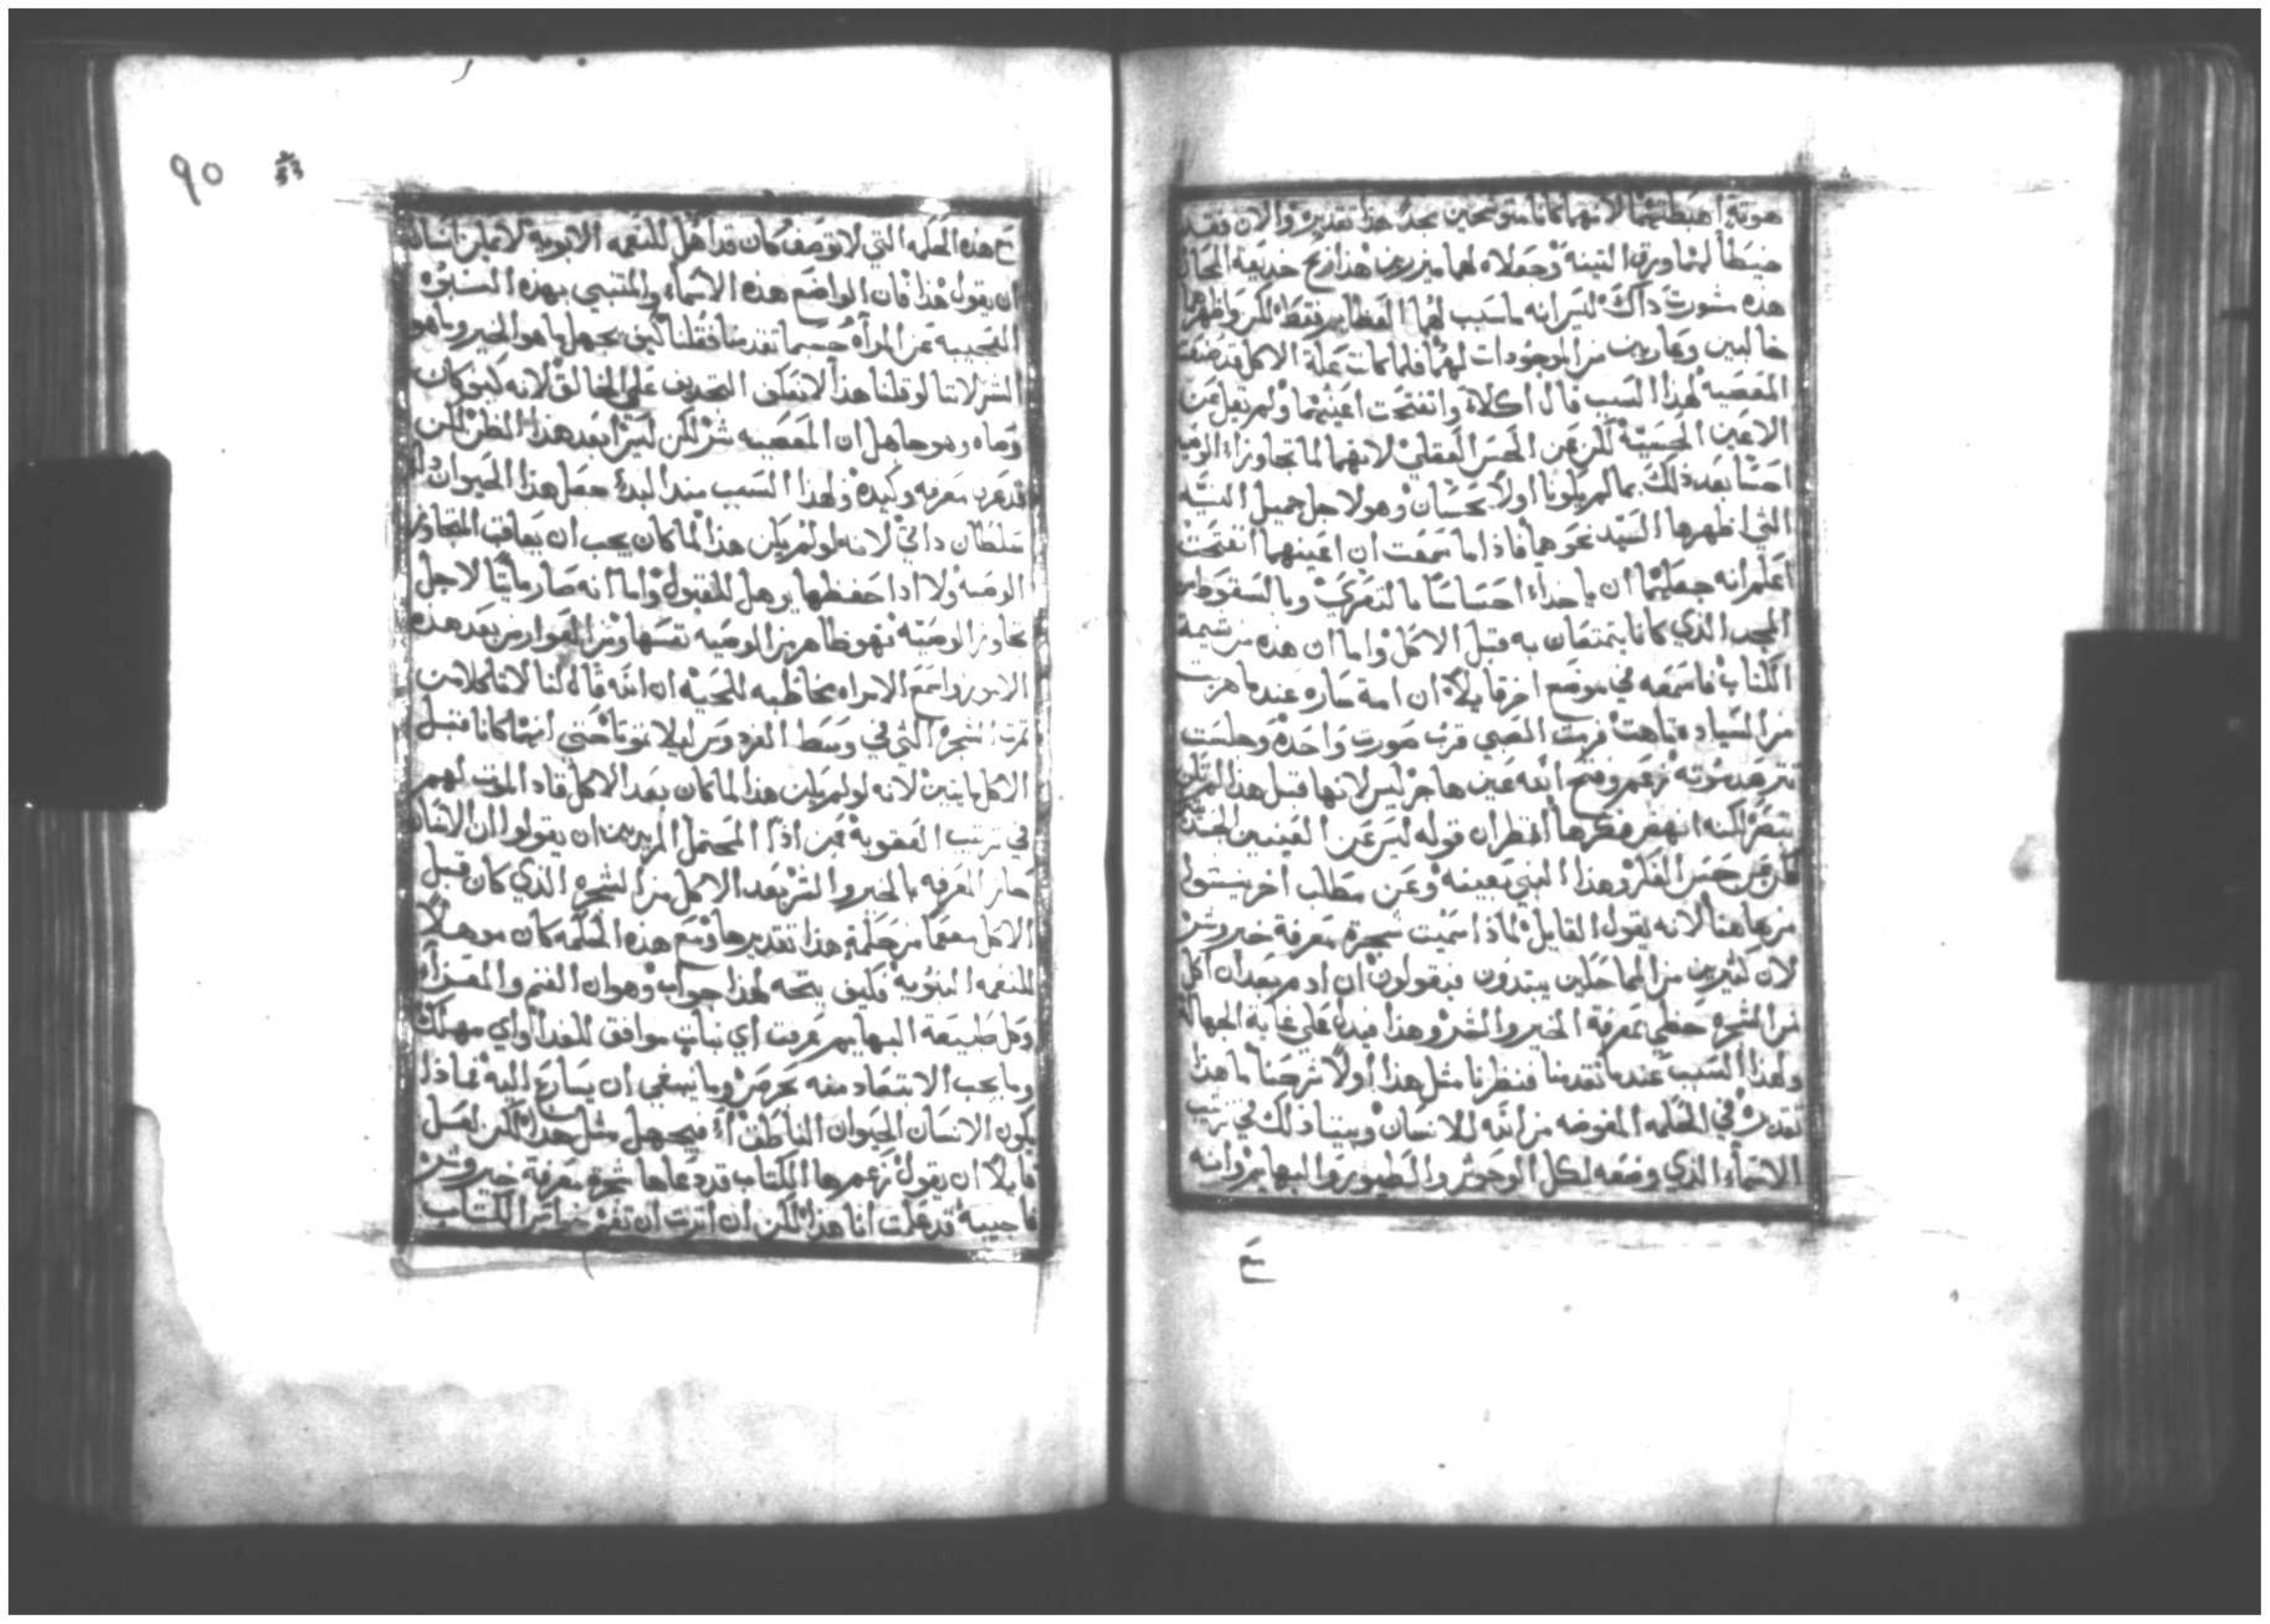 هوته اهبطتهما لانهما كانا متوشحين بمجد هذا تقديره والان فقد
خيطا لهما ورق التينه وجعلاه لهما ميزرين هذا ربح خديعة المحال
هذه شورت ذاك ليس انه ما سبب لهما العظايم فقط لكن واظهرهما
خاليين وعاريين من الموجودات لهما فلما كانت علة الاكل قد صنعت
المعصيه لهذا السبب قال اكلا وانفتحت اعينهما ولم يقل عن
الاعين الحسية لكن عن الحس العقلي لانهما لما تجاوزا الوصيه
احسا بعد ذلك بما لم يكونا اولا يحسان وهو لاجل جميل النيه
التي اظهرها السيد نحوهما فاذا ما سمعت ان اعينهما انفتحت
اعلم انه جعلهما ان ياخذا احساسا بالتعري وبالسقوط من
المجد الذي كانا يتمتعان به قبل الاكل واما ان هذه من شيمة
الكتاب فاسمعه في موضع اخر قايلا ان امة ساره عندما هربت
من السياده تاهت فرمت الصبي قرب صورت واحده وجلست
تترصد موته زعم وفتح الله عين هاجر ليس لانها قبل هذا لم تكن
تبصر لكنه انهض فكرها انظر ان قوله ليس عن العينين الحسيه
لكن عن حس الفكر وهذا النبي بعينه وعن مطلب اخر ينبتولى
من هاهنا لانه يقول القايل لماذا سميت شجرة معرفة خير وشر
لان كثيرين من الجاهلين يبتدون فيقولون ان ادم بعد ان اكل
من الشجره حظي بمعرفة الخير والشر وهذا فيدل على غاية الجهاله
ولهذا السبب عندما تقدمنا فنظرنا مثل هذا اولا شرحنا ما هذا
تقديره في الحكمه المفوضه من الله للانسان وبينا ذلك في ترتيب
الاسماء الذي وضعه لكل الوحوش والطيور والبهايم وانه
مع
٩٥
مع هذه الحكمه التي لا توصف كان قد اهل للنعمه الابويه لا يمكن انسان
ان يقول هذا فان الواضع هذه الاسماء والمتنبي بهذه النبوه
العجيبه عن المرأه حسبما تقدمنا فقلنا كيف يجهل ما هو الخير وما هو
الشر لاننا لو قلنا هذا لانعكف التجديف على الخالق لانه كيف كان
وصاه وهو جاهل ان المعصيه شر لكن ليس بعد هذا الظن لكن
قد عرف معرفه وكيده ولهذا السبب منذ البدء جعل هذا الحيوان ذا
سلطان ذاتي لانه لو لم يكن هذا لما كان يجب ان يعاقب المتجاوز
الوصيه ولا اذا حفظها يوهل للقبول واما انه صار مايتا لاجل
تجاوز الوصيه فهو ظاهر من الوصيه نفسها ومن العوارض بعد هذه
الامور واسمع الامراه مخاطبه للحيه ان الله قال لنا لا تاكلا من
ثمرت الشجره التي في وسط الفردوس ليلا تموتا حتى انهما كانا قبل
الاكل مايتين لانه لو لم يكن هذا لما كان بعد الاكل قاد الموت لهم
في ترتيب العقوبة فمن اذا المحتمل المريدين ان يقولوا ان الانسان
حاز المعرفه بالخير والشر بعد الاكل من الشجره الذي كان قبل
الاكل مفعما من حكمة هذا تقديرها ومع هذه الحكمه كان موهلا
للنعمه النبويه فكيف يتجه لهذا جواب وهو ان الغنم والمعز
وكل طبيعة البهايم عرفت اي نبات موافق للغذا واي مهلك
وما يجب الابتعاد منه بحرص وما ينبغي ان يسارع اليه فماذا
يكون الانسان الحيوان الناطق أء فيجهل مثل هذا لكن لعل
قايلا ان يقول زعم ها الكتاب قد دعاها شجرة معرفة خير وشر
فاجيبه قد علمت انا هذا لكن ان اثرت ان تعرف خواص الكتاب